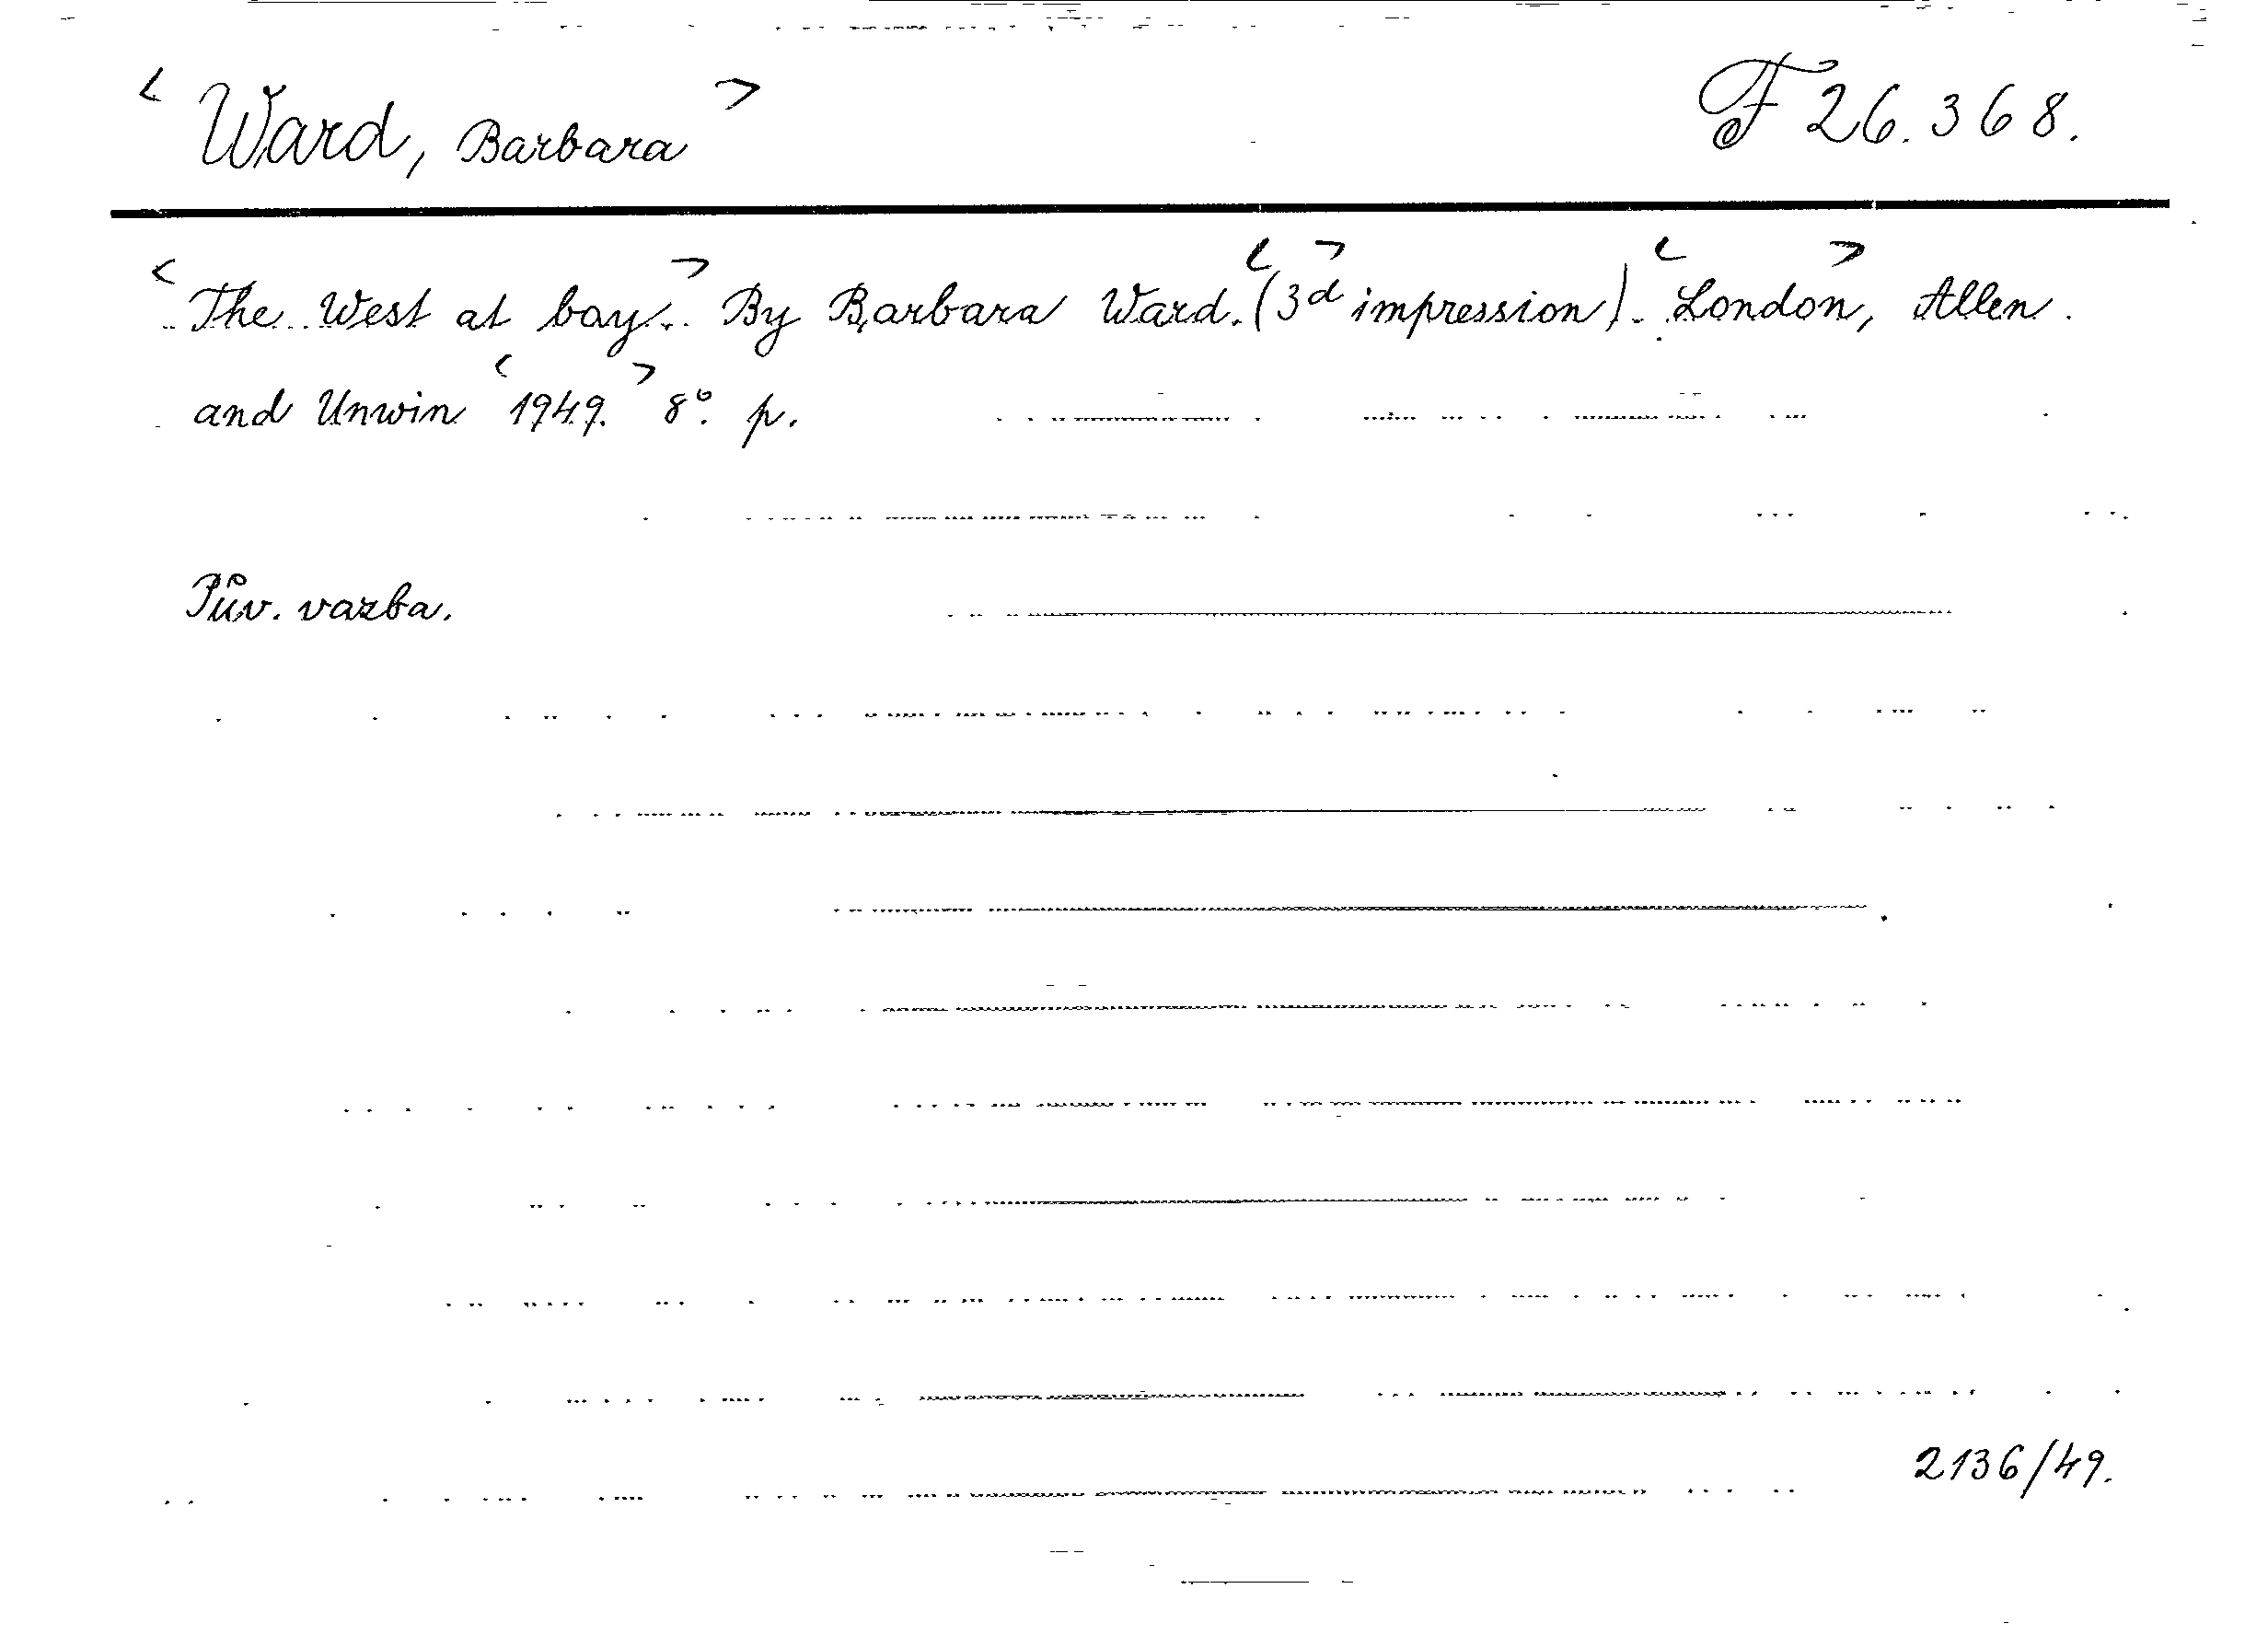 < Ward, Barbara > F 26.368.
< The West at bay. > By Barbara Ward. (< 3d > impression). < London, > Allen
and Unwin < 1949. > 8°. p.
Pův. vazba.
2136/49.